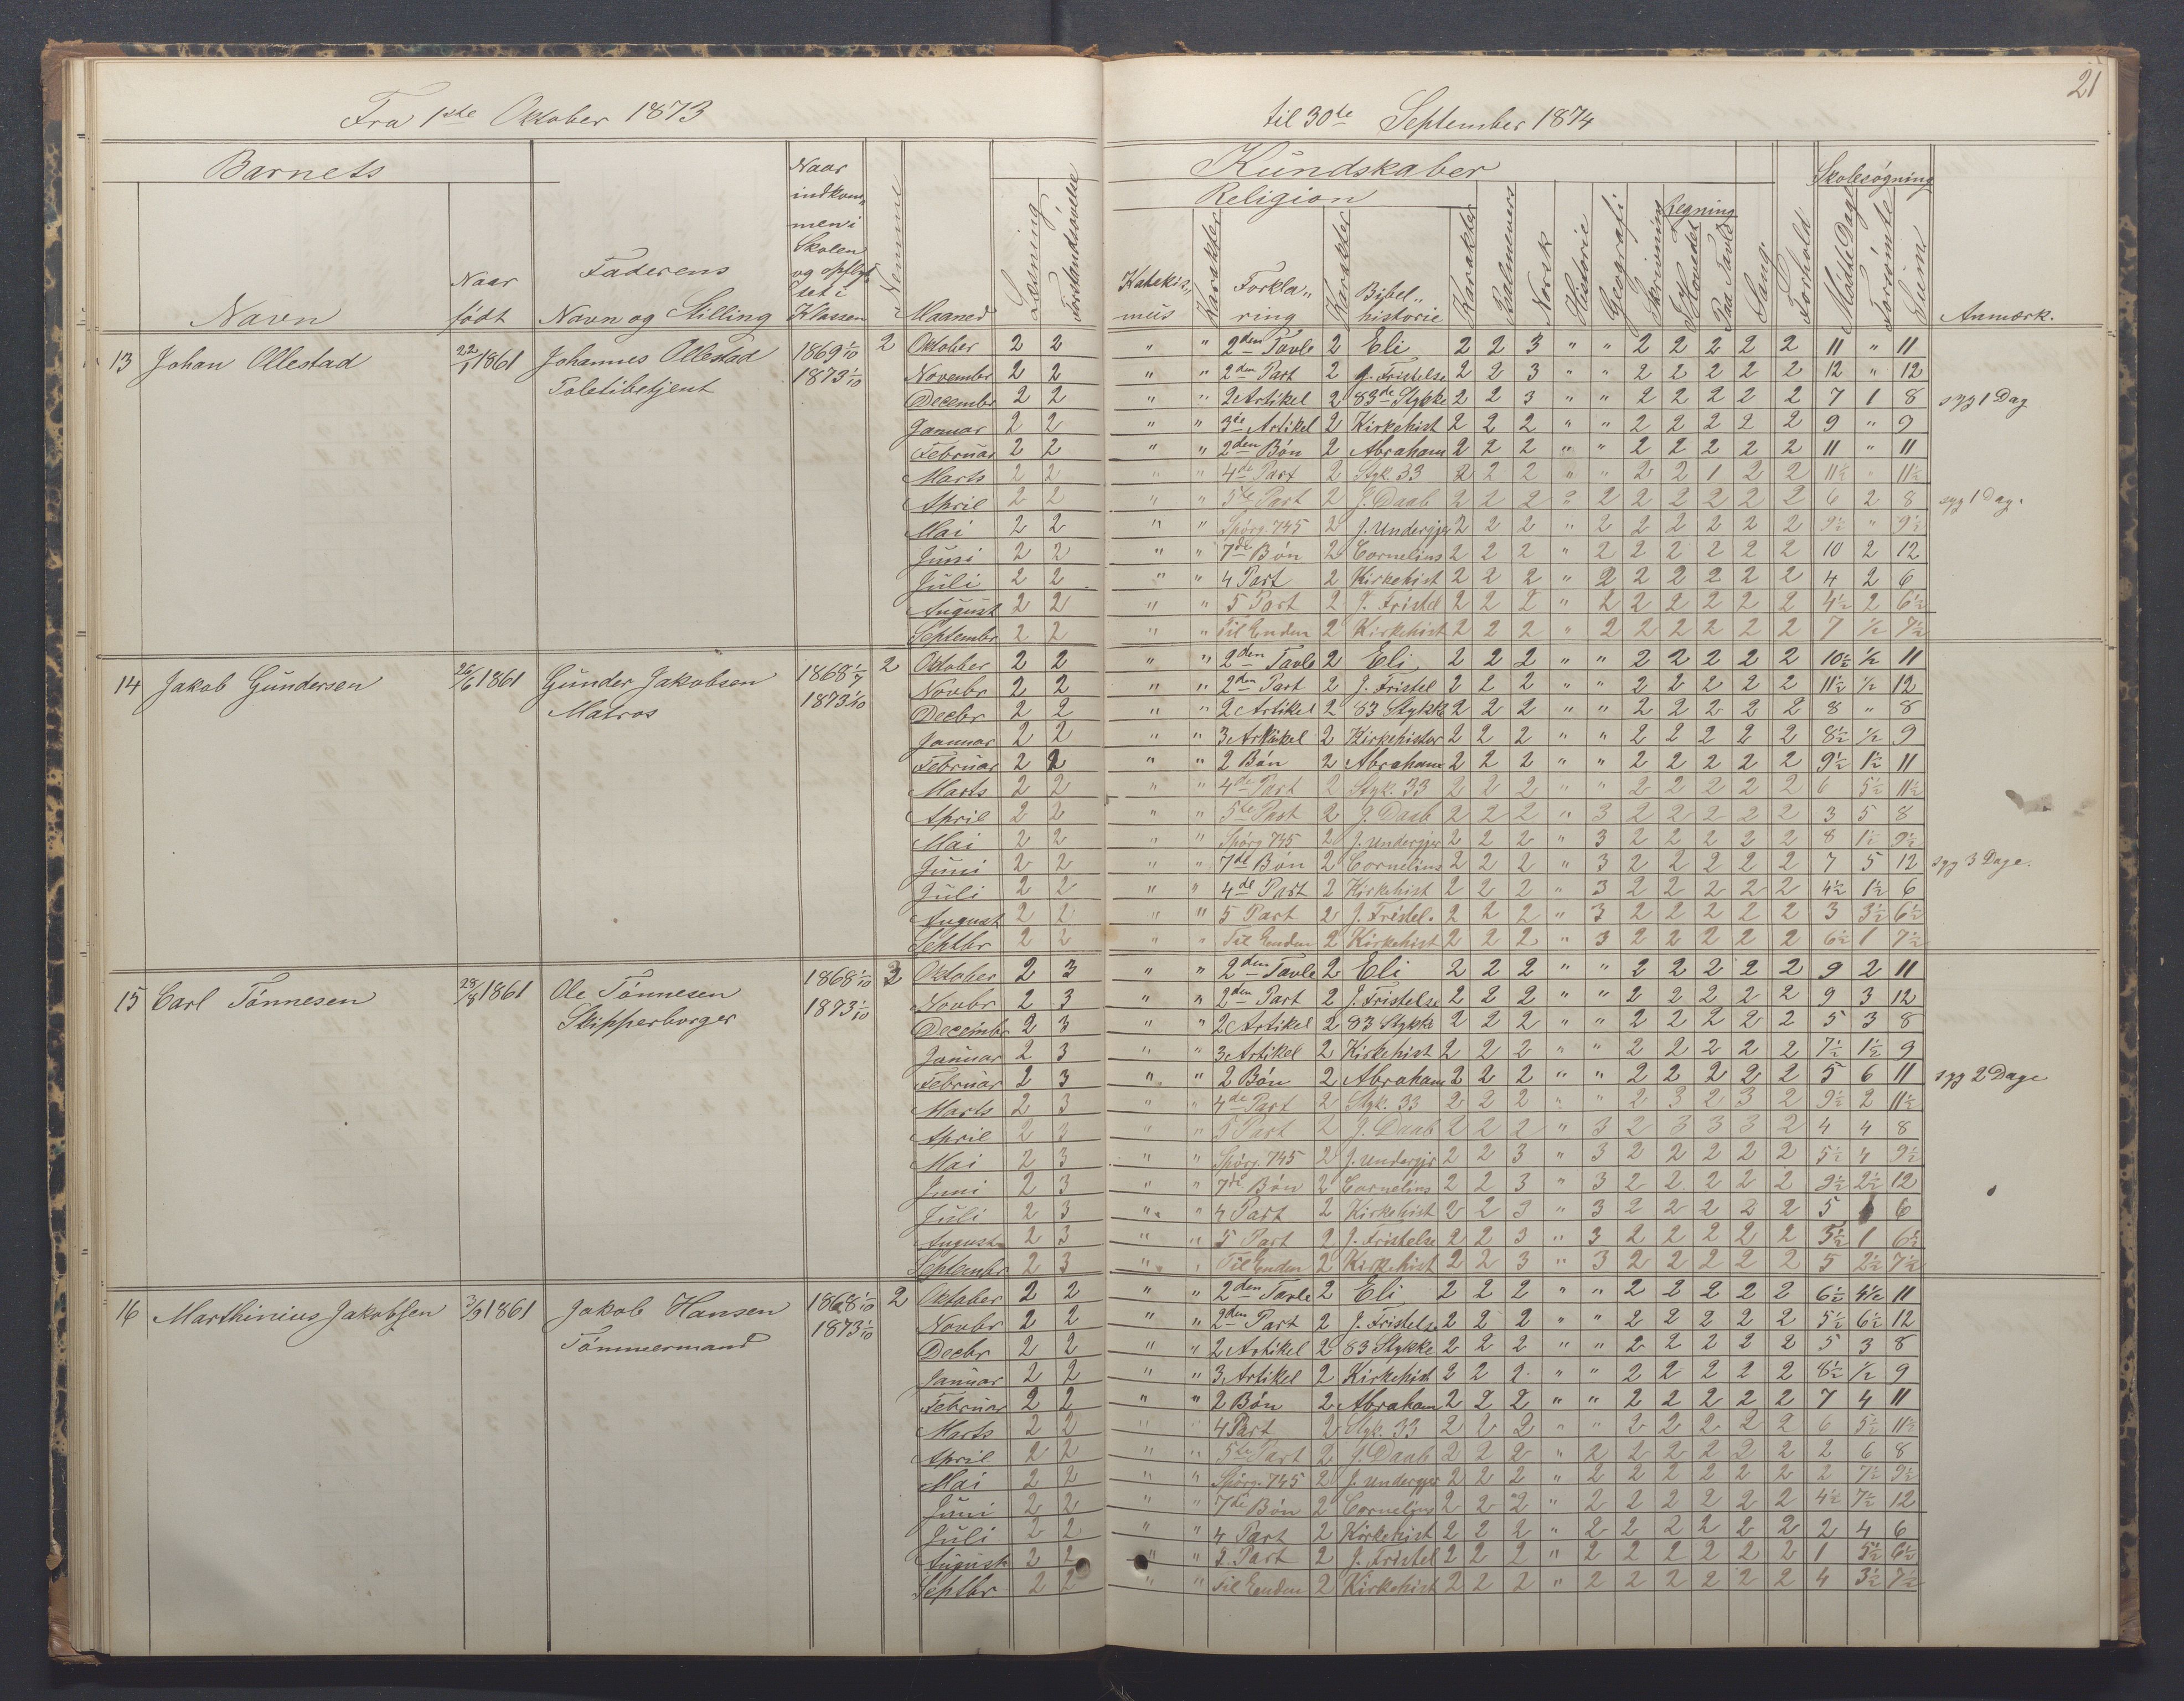 21
Fra 1ste Oktober 1873 til 30te September 1874
Barnets Kundskaber Skolesøgning
Religion Regning
Navn Naar født Faderens Navn og Stilling Naar indkommen i Skolen og opflyttet i Klassen Nummer Maaned Læsning Forstandsøvelse Katekismus Karakter Forklaring Karakter Bibelhistorie Karakter Psalmevers Norsk Historie Geografi Skrivning I Hovedet Paa Tavle Sang Forhold Mødte Dage Forsømte Summa Anmærk.
13 Johan Ollestad 22/1 1861 Johannes Ollestad 1869 1/10 2 Oktober 2 2 " " 2den Tavle 2 Eli 2 2 3 " " 2 2 2 2 2 11 " 11
Politibetjent 1873 1/10 November 2 2 " " 2den Part 2 J. Fristelse 2 2 3 " " 2 2 2 2 2 12 " 12
Decembr 2 2 " " 2 Artikel 2 83de Stykke 2 2 3 " " 2 2 2 2 2 7 1 8 syg 1 Dag
Januar 2 2 " " 3die Artikel 2 Kirkehist 2 2 2 " " 2 2 2 2 2 9 " 9
Februar 2 2 " " 2den Bøn 2 Abraham 2 2 2 " " 2 2 2 2 2 11 " 11
Marts 2 2 " " 4de Part 2 Styk. 33 2 2 2 " " 2 2 1 2 2 11½ " 11½
April 2 2 " " 5te Part 2 J. Daab 2 2 2 2 2 2 2 2 2 2 6 2 8 syg 1 Dag.
Mai 2 2 " " Spørg. 745 2 J. Undergjer 2 2 2 " 2 2 2 2 2 2 9½ " 9½
Juni 2 2 " " 7de Bøn 2 Cornelius 2 2 2 " 2 2 2 2 2 2 10 2 12
Juli 2 2 " " 4 Part 2 Kirkehist 2 2 2 " 2 2 2 2 2 2 4 2 6
August 2 2 " " 5 Part 2 J. Fristel 2 2 2 " 2 2 2 2 2 2 4½ 2 6½
Septembr 2 2 " " Til Enden 2 Kirkehist 2 2 2 " 2 2 2 2 2 2 7 ½ 7½
14 Jakob Gundersen 26/6 1861 Gunder Jakobsen 1868 1/7 2 Oktober 2 2 " " 2den Tavle 2 Eli 2 2 2 " " 2 2 2 2 2 10½ ½ 11
Matros 1873 1/10 Novbr 2 2 " " 2den Part 2 J. Fristel 2 2 2 " " 2 2 2 2 2 11½ ½ 12
Decbr 2 2 " " 2 Artikel 2 83 Stykke 2 2 2 " " 2 2 2 2 2 8 " 8
Januar 2 2 " " 3 Artikel 2 Kirkehistor 2 2 2 " " 2 2 2 2 2 8½ ½ 9
Februar 2 2 " " 2 Bøn 2 Abraham 2 2 2 " " 2 2 2 2 2 9½ 1½ 11
Marts 2 2 " " 4de Part 2 Styk. 33 2 2 2 " " 2 2 2 2 2 6 5½ 11½
April 2 2 " " 5te Part 2 J. Daab 2 2 2 " 3 2 2 2 2 2 3 5 8
Mai 2 2 " " Spørg 745 2 J. Undergjer 2 2 2 " 3 2 2 2 2 2 8 1½ 9½
Juni 2 2 " " 7de Bøn 2 Cornelius 2 2 2 " 3 2 2 2 2 2 7 5 12 syg 3 Dage.
Juli 2 2 " " 4de Part 2 Kirkehist 2 2 2 " 3 2 2 2 2 2 4½ 1½ 6
August 2 2 " " 5 Part 2 J. Fristel. 2 2 2 " 3 2 2 2 2 2 3 3½ 6½
Septbr 2 2 " " Til Enden 2 Kirkehist 2 2 2 " 3 2 2 2 2 2 6½ 1 7½
15 Carl Tønnesen 28/8 1861 Ole Tønnesen 1868 1/10 2 Oktober 2 3 " " 2den Tavle 2 Eli 2 2 2 " " 2 2 2 2 2 9 2 11
Skipperborger 1873 1/10 Novbr 2 3 " " 2den Part 2 J. Fristelse 2 2 2 " " 2 2 2 2 2 9 3 12
Decembr 2 3 " " 2 Artikel 2 83 Stykke 2 2 2 " " 2 2 2 2 2 5 3 8
Januar 2 3 " " 3 Artikel 2 Kirkehist 2 2 2 " " 2 2 2 2 2 7½ 1½ 9
Februar 2 3 " " 2 Bøn 2 Abraham 2 2 2 " " 2 2 2 2 2 5 6 11 syg 2 Dage
Marts 2 3 " " 4de Part 2 Styk. 33 2 2 2 " " 2 3 2 3 2 9½ 2 11½
April 2 3 " " 5 Part 2 J. Daab 2 2 2 " 3 2 3 3 3 2 4 4 8
Mai 2 3 " " Spørg. 745 2 J. Undergjr 2 2 3 " 3 2 2 2 2 2 5½ 4 9½
Juni 2 3 " " 7de Bøn 2 Cornelius 2 2 3 " 3 2 2 2 2 2 9½ 2½ 12
Juli 2 3 " " 4 Part 2 Kirkehist 2 2 3 " 3 2 2 2 2 2 5 6
August 2 3 " " 5 Part 2 J. Fristelse 2 2 3 " 3 2 2 2 2 2 5½ 1 6½
Septembr 2 3 " " Til Enden 2 Kirkehist 2 2 3 " 3 2 2 2 2 2 5 2½ 7½
16 Marthinius Jakobsen 3/9 1861 Jakob Hansen 1868 1/10 2 Oktober 2 2 " " 2den Tavle 2 Eli 2 2 2 " " 2 2 2 2 2 6½ 4½ 11
Tømmermand 1873 1/10 Novbr 2 2 " " 2den Part 2 J. Fristelse 2 2 2 " " 2 2 2 2 2 5½ 6½ 12
Decbr 2 2 " " 2 Artikel 2 83 Stykke 2 2 2 " " 2 2 2 2 2 5 3 8
Januar 2 2 " " 3 Artikel 2 Kirkehist 2 2 2 " " 2 2 2 2 2 8½ ½ 9
Februar 2 2 " " 2 Bøn 2 Abraham 2 2 2 " " 2 2 2 2 2 7 4 11
Marts 2 2 " " 4 Part 2 Styk. 33 2 2 2 " " 2 2 2 2 2 6 5½ 11½
April 2 2 " " 5te Part 2 J. Daab 2 2 2 " 2 2 2 2 2 2 2 6 8
Mai 2 2 " " Spørg. 745 2 J. Undergjer 2 2 2 " 2 2 2 2 2 2 2 7½ 9½
Juni 2 2 " " 7de Bøn 2 Cornelius 2 2 2 " 2 2 2 2 2 2 4½ 7½ 12
Juli 2 2 " " 4 Part 2 Kirkehist 2 2 2 " 2 2 2 2 2 2 2 4 6
August 2 2 " " Part 2 J. Fristel 2 2 2 " 2 2 2 2 2 2 1 5½ 6½
Septbr 2 2 " " Til Enden 2 Kirkehist 2 2 2 " 2 2 2 2 2 2 4 3½ 7½